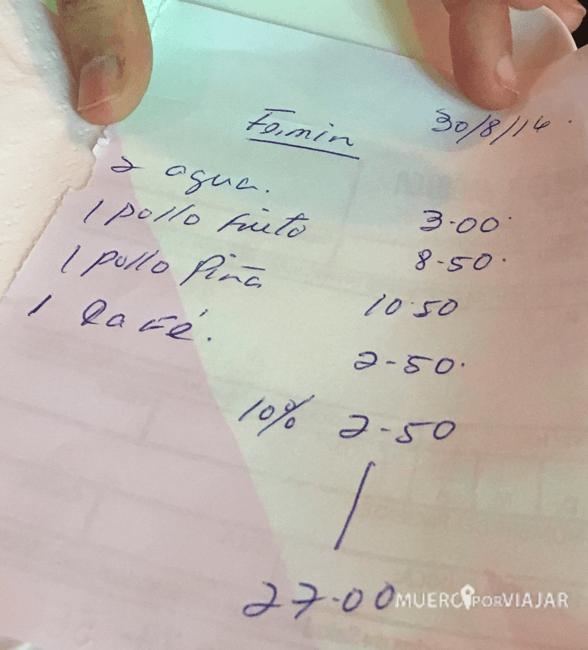 Fermin 30/8/14
2 agua. 3.00
1 pollo frito 8-50.
1 pollo Piña 10.50
1 Café. 2-50.
10% 2-50
27.00
MUERO PORVIAJAR